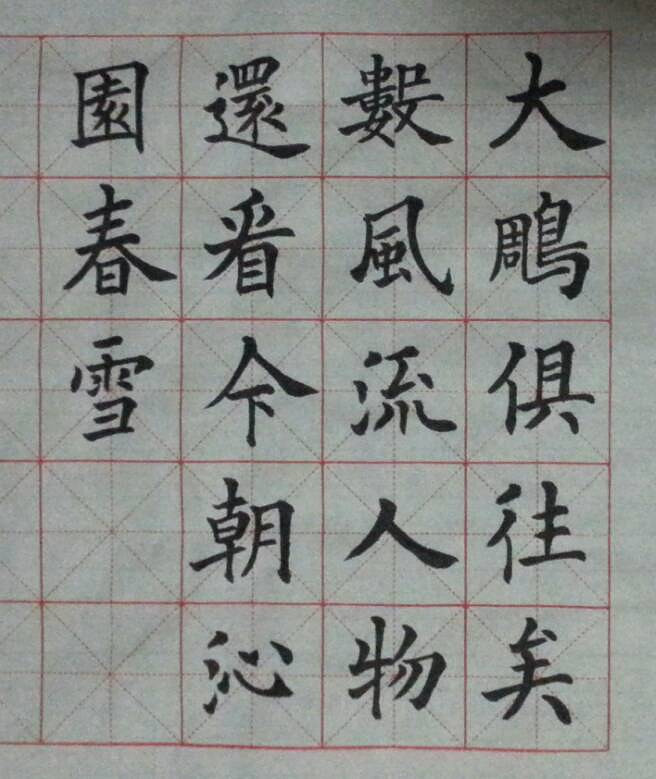 大鵰俱往矣
數風流人物
還看今朝沁
園春雪